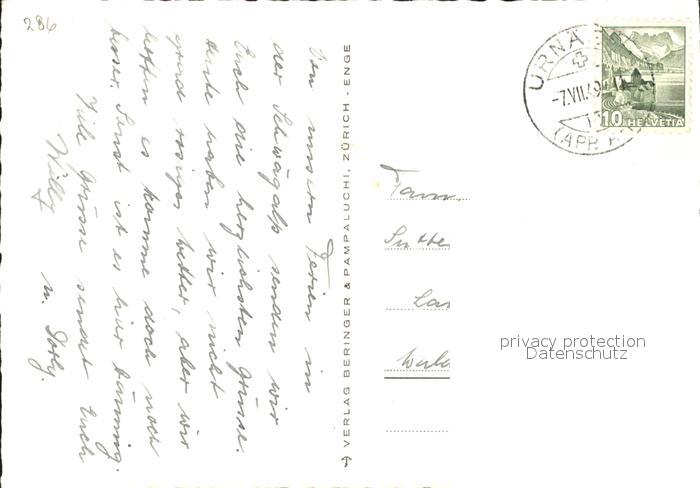 286
Von unsern Ferien in
der Schwägalp senden wir
Euch die herzlichsten Grüsse.
Heute haben wir nicht
grad rosiges Wetter, aber wir
hoffen es komme doch noch
besser. Sonst ist es hier bäumig.
Viele Grüsse sendet Euch
Willy
u. Dorly.
VERLAG BERINGER & PAMPALUCHI, ZÜRICH - ENGE
URNÄ
-7.VII.49
(APP.
10 HELVETIA
Fam.
Sutte
Wald
privacy protection
Datenschutz